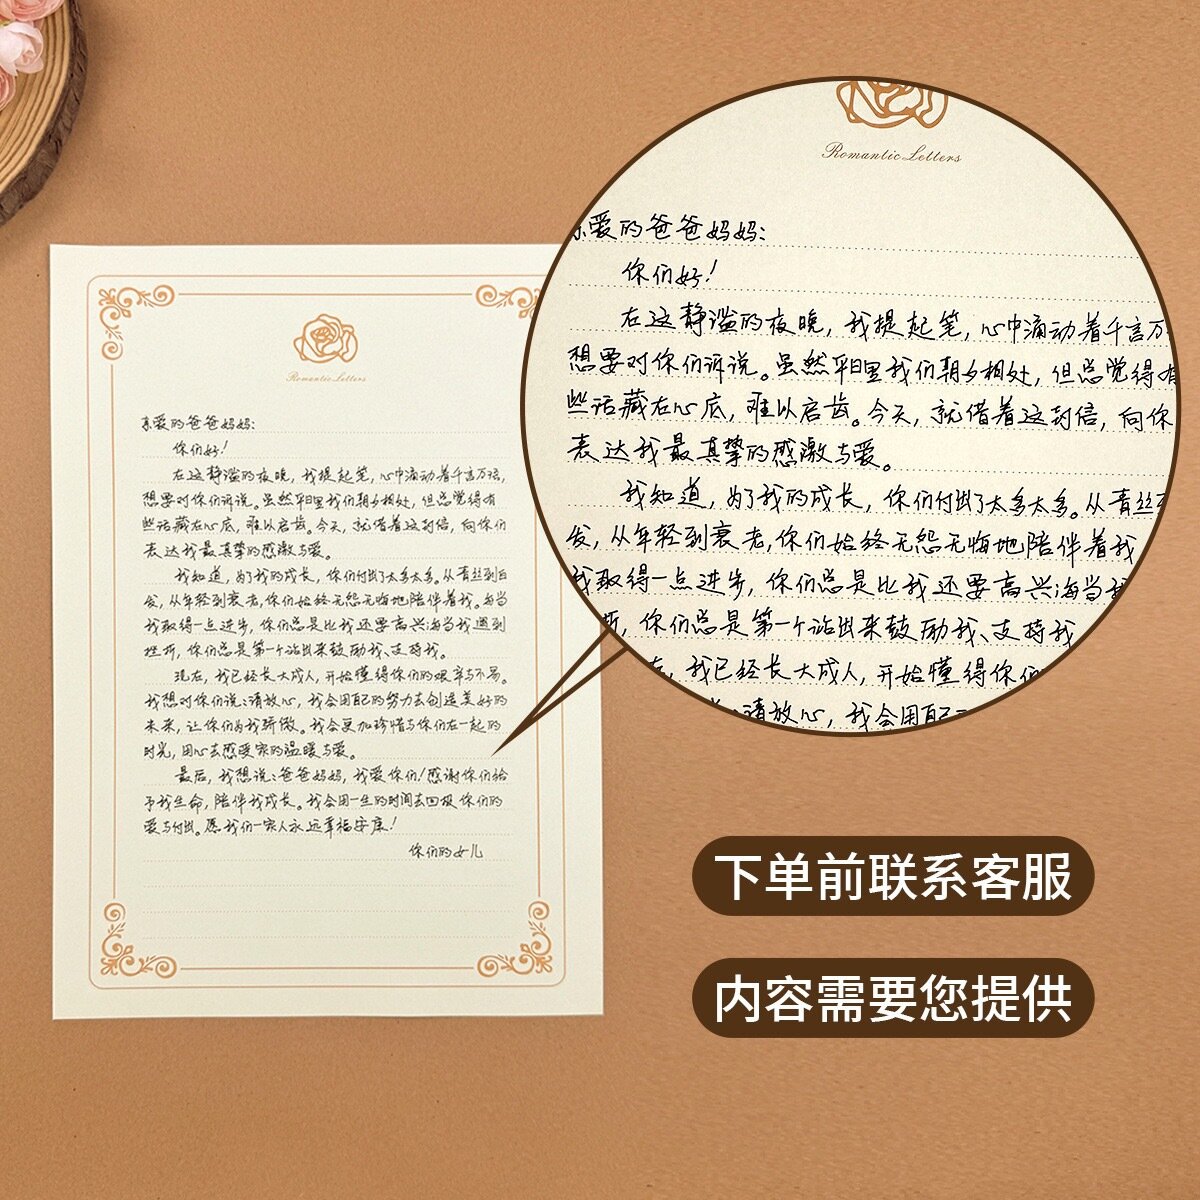 Romantic Letters
亲爱的爸爸妈妈:
你们好!
在这静谧的夜晚,我提起笔,心中涌动着千言万语,
想要对你们诉说。虽然平日里我们朝夕相处,但总觉得有
些话藏在心底,难以启齿。今天,就借着这封信,向你们
表达我最真挚的感激与爱。
我知道,为了我的成长,你们付出了太多太多。从青丝到白
发,从年轻到衰老,你们始终无怨无悔地陪伴着我。每当
我取得一点进步,你们总是比我还要高兴;每当我遇到
挫折,你们总是第一个站出来鼓励我、支持我。
现在,我已经长大成人,开始懂得你们的艰辛与不易。
我想对你们说:请放心,我会用自己的努力去创造美好的
未来,让你们为我骄傲。我会更加珍惜与你们在一起的
时光,用心去感受家的温暖与爱。
最后,我想说:爸爸妈妈,我爱你们!感谢你们给
予我生命,陪伴我成长。我会用一生的时间去回报你们的
爱与付出。愿我们一家人永远幸福安康!
你们的女儿
Romantic Letters
亲爱的爸爸妈妈:
你们好!
在这静谧的夜晚,我提起笔,心中涌动着千言万
想要对你们诉说。虽然平日里我们朝夕相处,但总觉得有
些话藏在心底,难以启齿。今天,就借着这封信,向你
表达我最真挚的感激与爱。
我知道,为了我的成长,你们付出了太多太多。从青丝到
发,从年轻到衰老,你们始终无怨无悔地陪伴着我
我取得一点进步,你们总是比我还要高兴;每当我
折,你们总是第一个站出来鼓励我、支持我
在,我已经长大成人,开始懂得你们
请放心,我会用自己
下单前联系客服
内容需要您提供